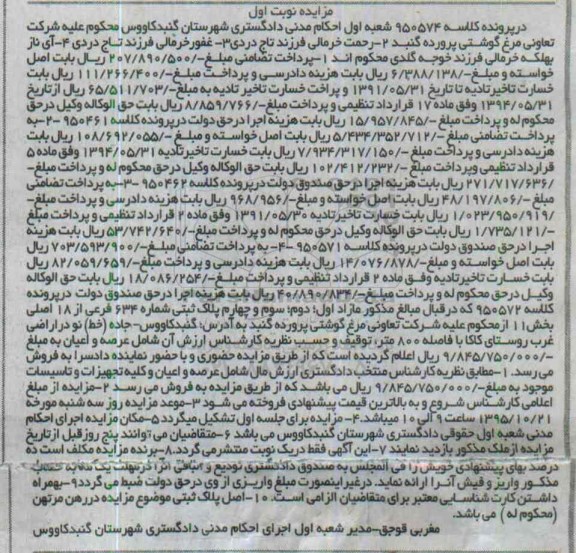 مزایده نوبت اول
درپرونده کلاسه ۹۵۰۵۷۴ شعبه اول احکام مدنی دادگستری شهرستان گنبدکاووس محکوم علیه شرکت
تعاونی مرغ گوشتی پرورده گنبد ۲-رحمت خرمالی فرزند تاج دردی۳- غفورخرمالی فرزند تاج دردی ۴-آی ناز
بهلکه خرمالی فرزند خوجه گلدی محکوم اند ۱-پرداخت تضامنی مبلغ-/۲۰۷/۸۹۰/۵۰۰ ریال بابت اصل
خواسته و مبلغ-/۶/۳۸۸/۱۳۸ ریال بابت هزینه دادرسی و پرداخت مبلغ-/۱۱۱/۲۶۶/۴۰۰ ریال بابت
خسارت تاخیرتادیه تا تاریخ ۱۳۹۱/۰۵/۳۱ و پراخت خسارت تاخیر تادیه به مبلغ-/۶۵/۵۱۱/۷۰۳ ریال ازتاریخ
۱۳۹۴/۰۵/۳۱ وفق ماده ۱۷ قرارداد تنظیمی و پرداخت مبلغ-/۸/۸۵۹/۷۶۶ ریال بابت حق الوکاله وکیل درحق
محکوم له و پرداخت مبلغ-/۱۵/۹۵۷/۸۴۵ ریال بابت هزینه اجرا درحق دولت درپرونده کلاسه ۹۵۰۴۶۱ -۲-به
پرداخت تضامنی مبلغ -/۵/۴۳۴/۳۵۲/۷۱۲ ریال بابت اصل خواسته و مبلغ -/۱۰۸/۶۹۲/۰۵۵ ریال بابت
هزینه دادرسی و پرداخت مبلغ -/۷/۹۳۴/۳۱۷/۱۵۰ ریال بابت خسارت تاخیرتادیه ۱۳۹۴/۰۵/۳۱ وفق ماده ۵
قرارداد تنظیمی وپرداخت مبلغ -/۱۰۲/۴۱۲/۲۳۲ ریال بابت حق الوکاله وکیل درحق محکوم له و پرداخت مبلغ-
/۲۷۱/۷۱۷/۶۳۶ ریال بابت هزینه اجرا درحق صندوق دولت درپرونده کلاسه ۹۵۰۴۶۲ -۳-به پرداخت تضامنی
مبلغ-/۴۸/۱۹۷/۸۰۶ ریال بابت اصل خواسته و مبلغ-/۹۶۸/۹۵۶ ریال بابت هزینه دادرسی و پرداخت مبلغ-
/۱/۰۲۳/۹۵۰/۹۱۹ ریال بابت خسارت تاخیرتادیه ۱۳۹۱/۰۵/۳۰ وفق ماده ۲ قرارداد تنظیمی و پرداخت مبلغ
-/۱/۷۳۵/۱۲۱ ریال بابت حق الوکاله وکیل درحق محکوم له و پرداخت مبلغ-/۵۳/۷۴۲/۶۴۰ ریال بابت هزینه
اجرا درحق صندوق دولت درپرونده کلاسه ۹۵۰۵۷۱ -۴- به پرداخت تضامنی مبلغ-/۷۰۳/۵۹۳/۹۰۰ ریال
بابت اصل خواسته و مبلغ-/۱۴/۰۷۶/۸۷۸ ریال بابت هزینه دادرسی و پرداخت مبلغ-/۸۲/۰۵۹/۶۵۹ ریال
بابت خسارت تاخیرتادیه وفق ماده ۲ قرارداد تنظیمی و پرداخت مبلغ-/۱۸/۰۸۶/۲۵۴ ریال بابت حق الوکاله
وکیل درحق محکوم له و پرداخت مبلغ-/۴۰/۸۹۰/۸۳۴ ریال بابت هزینه اجرا درحق صندوق دولت پرونده
کلاسه ۹۵۰۵۷۲ که درقبال مبالغ مذکور مازاد اول؛ دوم؛ سوم و چهارم پلاک ثبتی شماره ۶۳۴ فرعی از ۱۸ اصلی
بخش۱۱ ازمحکوم علیه شرکت تعاونی مرغ گوشتی پرورده گنبد به آدرس: گنبدکاووس-جاده (خط) نو دراراضی
غرب روستای کاکا با فاصله ۸۰۰ متر، توقیف و حسب نظریه کارشناس ارزش آن شامل عرصه و اعیان به مبلغ
-/۹/۸۴۵/۷۵۰/۰۰۰ ریال اعلام گردیده است که از طریق مزایده حضوری و با حضور نماینده دادسرا به فروش
می رسد. ۱-مطابق نظریه کارشناس منتخب دادگستری ارزش مال شامل عرصه و اعیان و کلیه تجهیزات و تاسیسات
موجود به مبلغ-/۹/۸۴۵/۷۵۰/۰۰۰ ریال می باشد که از طریق مزایده به فروش می رسد ۲-مزایده از مبلغ
اعلامی کارشناس شروع و به بالاترین قیمت پیشنهادی فروخته می شود ۳-موعد مزایده روز سه شنبه مورخه
۱۳۹۵/۱۰/۲۱ ساعت ۹ الی ۱۰ میباشد.۴- مزایده برای جلسه اول تشکیل میگردد ۵-مکان مزایده اجرای احکام
مدنی شعبه اول حقوقی دادگستری شهرستان گنبدکاووس می باشد ۶-متقاضیان می توانند پنج روزقبل ازتاریخ
مزایده ازملک مذکور بازدید نمایند ۷-این آگهی فقط دریک نوبت منتشرمی گردد.۸-برنده مزایده مکلف است ده
درصد بهای پیشنهادی خویش را فی المجلس به صندوق دادگستری تودیع و
مذکور واریز و فیش آنرا ارائه نماید. درغیراینصورت مبلغ واریزی از وی درحق دولت ضبط می گردد۹-بهمراه
داشتن کارت شناسایی معتبر برای متقاضیان الزامی است. ۱۰-اصل پلاک ثبتی موضوع مزایده دررهن مرتهن
(محکوم له ) می باشد.
مغربی قوجق-مدیر شعبه اول اجرای احکام مدنی دادگستری شهرستان گنبدکاووس